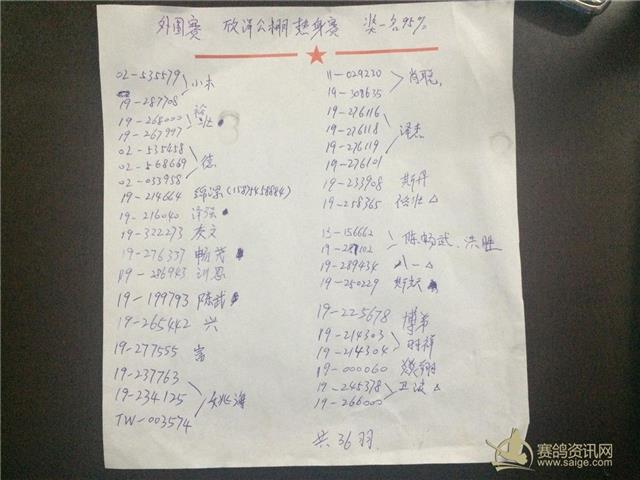 外围赛 欣泽公棚热身赛 奖一名95%
02-535579 小木
19-287708
19-268000 裕壮
19-267997
02-535458
02-568669 德
02-033958
19-214664
19-216040 泽强
19-322273 友文
19-276337 畅茂
19-286943 训恩
19-199793 陈武
19-265442 兴
19-277555 富
19-237763
19-234125 兆海
TW-003574
11-029230 肖聪
19-308635
19-276116
19-276118 泽杰
19-276119
19-276101
19-233908 斯丹
19-258365 裕壮△
13-156662 陈畅武、洪胜
19-289434 八一△
19-250229
19-225678 博弟
19-214303 时祥
19-214304
19-000060
19-245378 卫波△
19-266000
共36羽
赛鸽资讯网
www.saige.com